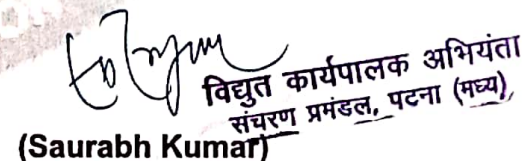 विद्युत कार्यपालक अभियंता
संचरण प्रमंडल, पटना (मध्य)
(Saurabh Kumar)